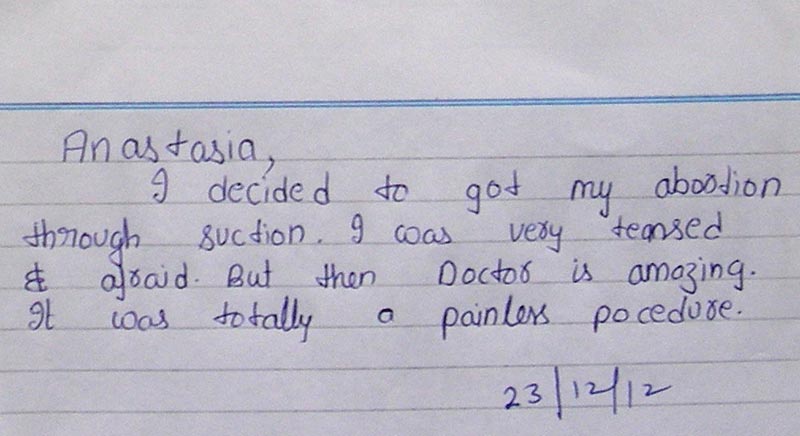 Anastasia,
I decided to got my abortion
through suction. I was very teansed
& afraid. But then Doctor is amazing.
It was totally a painless pocedure.
23/12/12